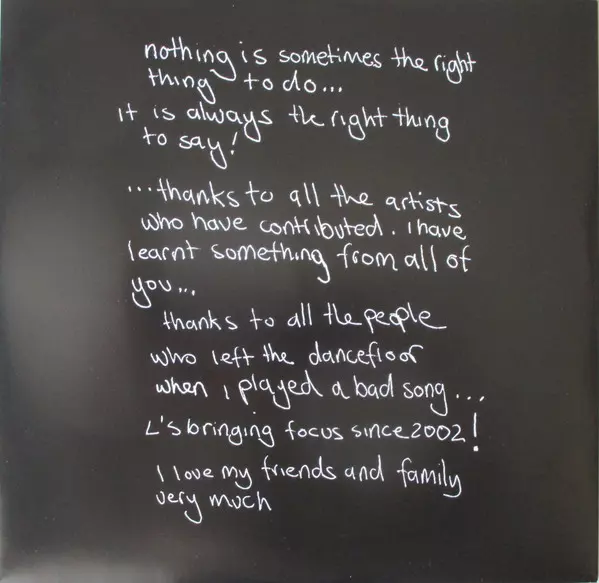 nothing is sometimes the right
thing to do...
it is always the right thing
to say!
...thanks to all the artists
who have contributed. I have
learnt something from all of
you...
thanks to all the people
who left the dancefloor
when i played a bad song...
L's bringing focus since 2002!
I love my friends and family
very much